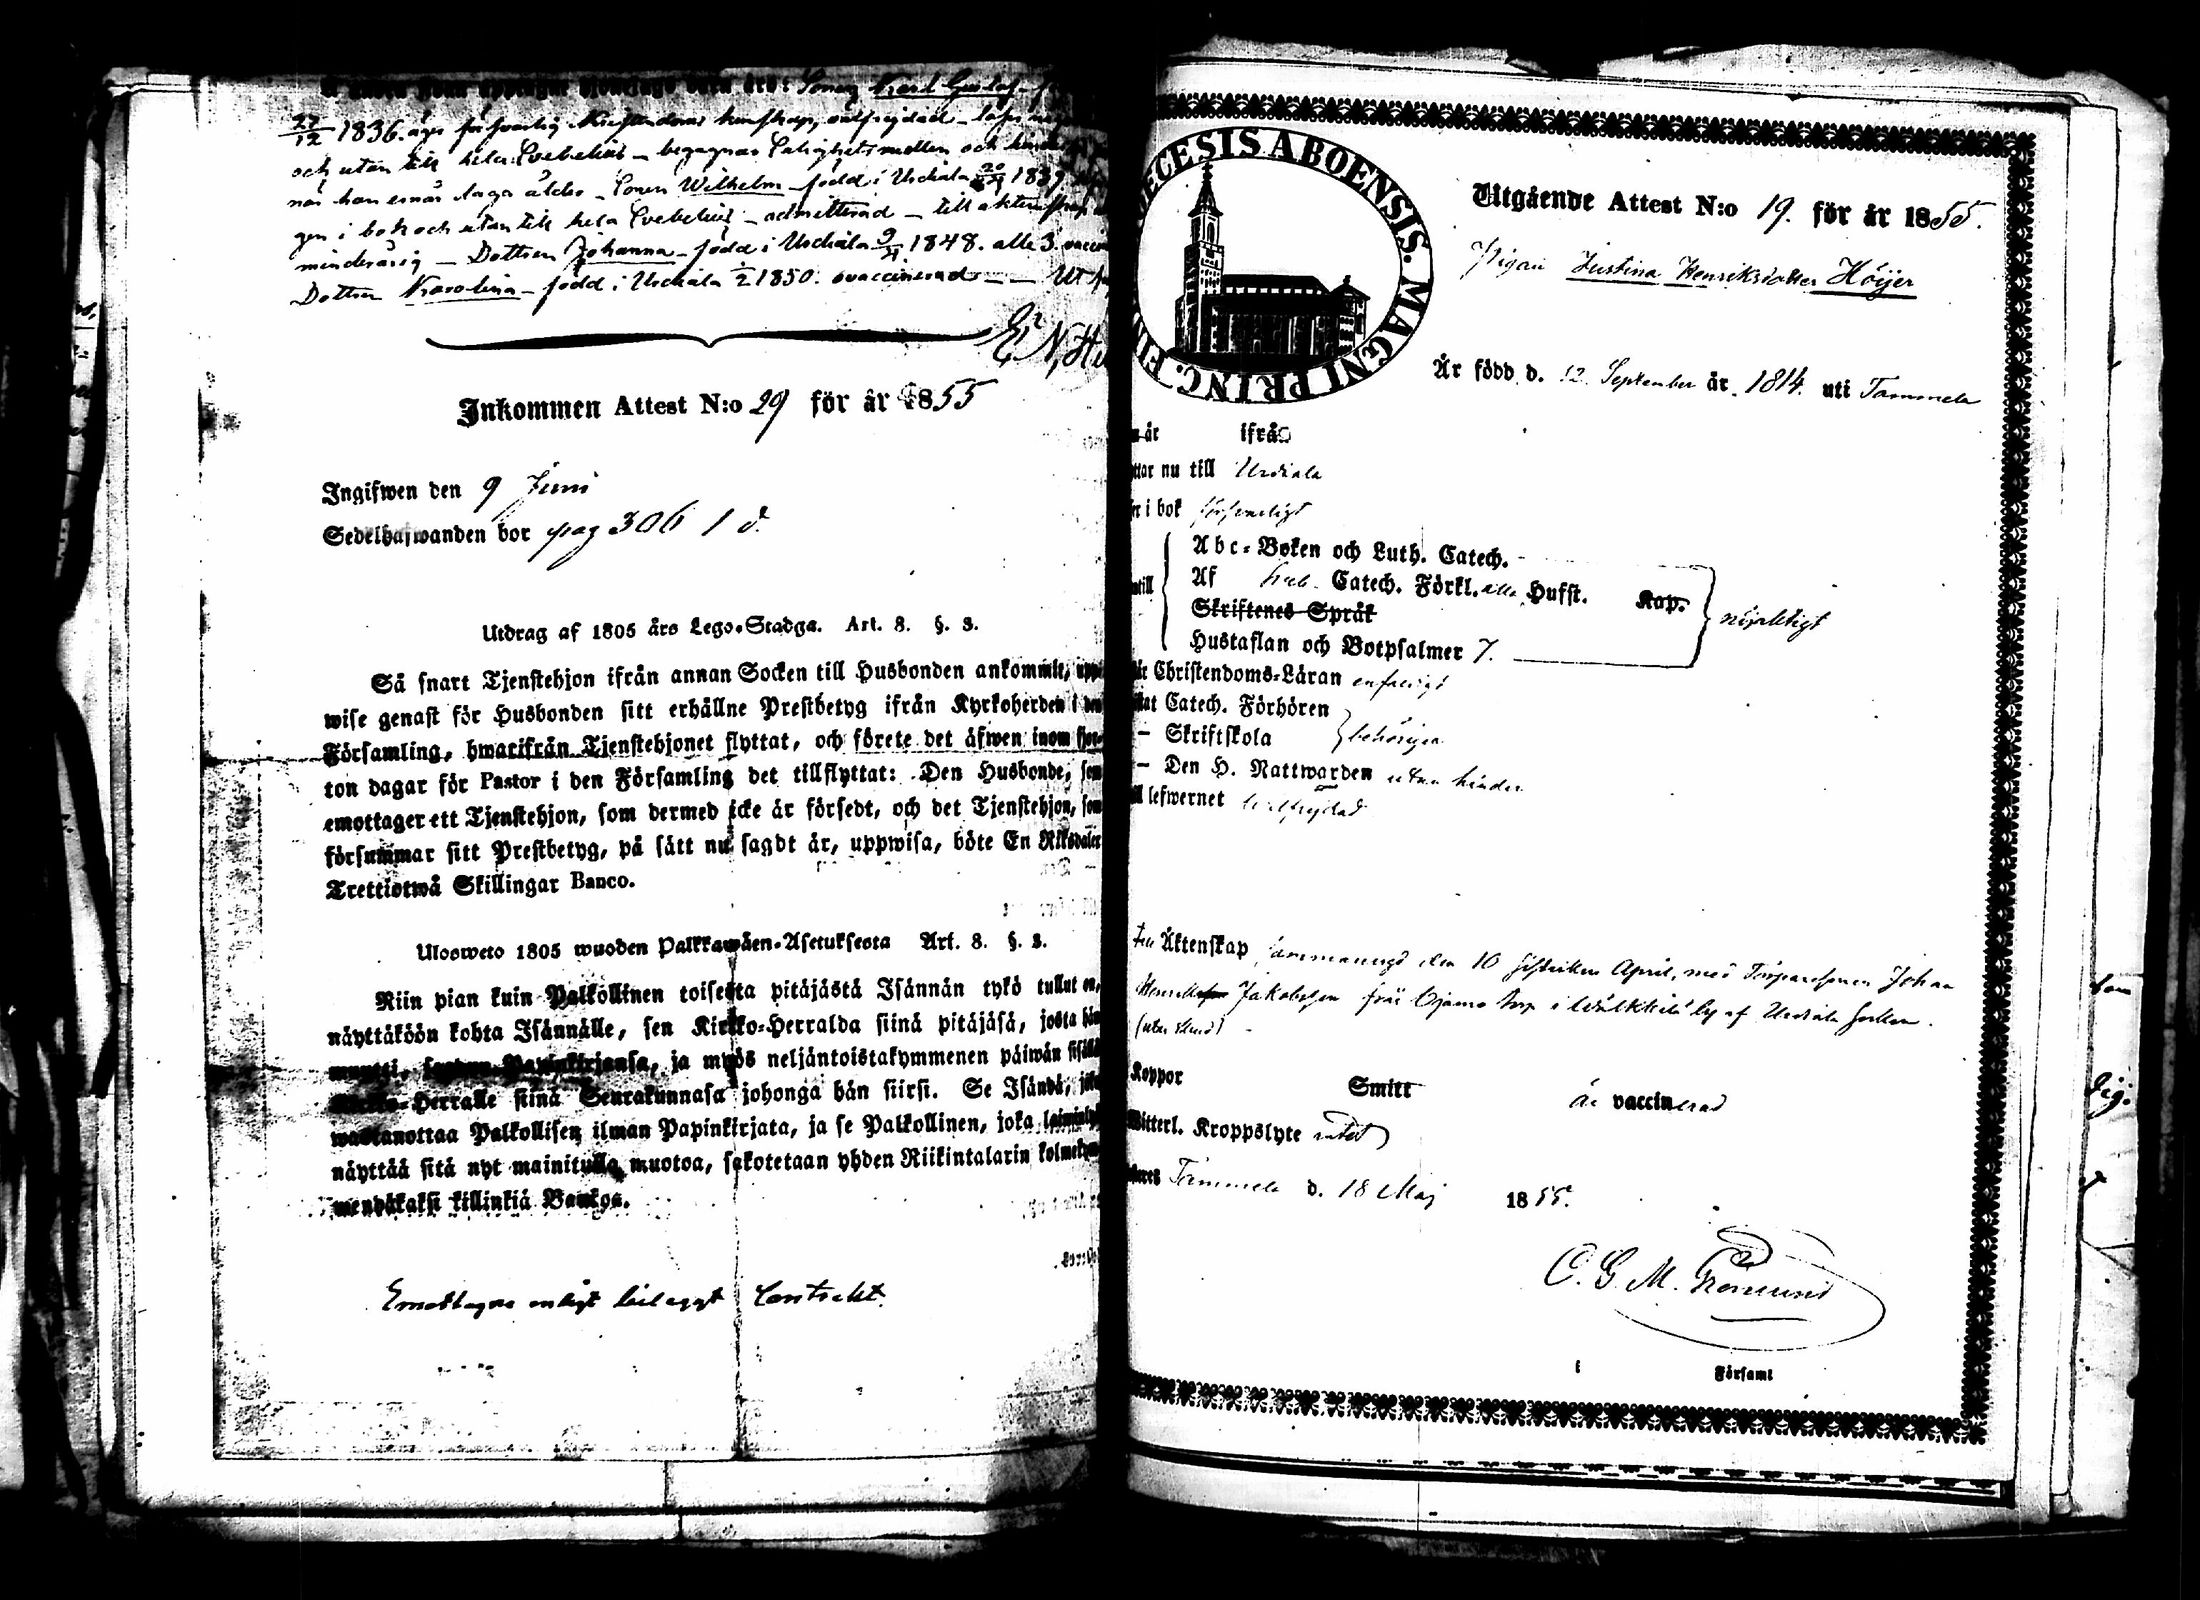 Sonen Karl Gustaf
27/12 1836. äger försvarlig Kristendoms kunskap, välfrejdad – läser
och utan till hela Svebelius – begagnar Salighetsmedlen och
när han ernår laga ålder – Sonen Wilhelm född i Urdiala 1839
gen i bok och utan till hela Svebelius – admitterad – till äktenskap
minderårig – Dottren Johanna – född i Urdiala 9/4 1848. alle 3.
Dottren Karolina – född i Urdiala 1/2 1850. ovaccinerad
Inkommen Attest N:o 29 för år 1855
Ingifwen den 9 Juni
Sedelhafwanden bor pag 306 1 d.
Utdrag af 1805 års Lego-Stadga. Art. 8. §. 3.
Så snart Tjenstehjon ifrån annan Socken till Husbonden ankommit,
wise genast för Husbonden sitt erhållne Prestbetyg ifrån Kyrkoherden i den
Församling, hwarifrån Tjenstehjonet flyttat, och förete det äfwen inom fjor-
ton dagar för Pastor i den Församling det tillflyttat: Den Husbonde, som
emottager ett Tjenstehjon, som dermed icke är försedt, och det Tjenstehjon, som
försummar sitt Prestbetyg, på sätt nu sagdt är, uppwisa, böte En Riksdaler
Trettiotwå Skillingar Banco.
Ulosweto 1805 wuoden Palkkawäen-Asetuksesta Art. 8. §. 3.
Niin pian kuin Palkollinen toisesta pitäjästä Isännän tykö tullut on,
näyttäköön kohta Isännälle, sen Kirkko-Herralda siinä pitäjäsä, josta hän
muutti, Papinkirjansa, ja myös neljäntoistakymmenen päiwän sisällä
Kirkko-Herralle siinä Seurakunnasa johonga hän siirsi. Se Isändä, joka
wastanottaa Palkollisen ilman Papinkirjata, ja se Palkollinen, joka laiminlyö
näyttää sitä nyt mainitulla muotoa, sakotetaan yhden Riikintalarin kolmekym-
mendäkaksi killinkiä Bankoa.
Emottagne enligt bilaggt Contrakt.
DIOECESIS ABOENSIS. MAGNI PRINC. FIN
Utgående Attest N:o 19. för år 1855.
Pigan Justina Henriksdotter Höijer
Är född d. 12 September år 1814. uti Tammela
år ifrå
ttar nu till Urdiala
i bok försvarligt
Abc-Boken och Luth. Catech.
Af Sveb. Catech. Förkl. alla Hufst. Kap.
Skriftenes Språk
Hustaflan och Botpsalmer 7. nöjaktigt
Christendoms-Läran enfaldigt
Catech. Förhören
– Skriftskola behörigen
– Den H. Nattwarden utan hinder
lefwernet välfrejdad
Äktenskap sammanvigd den 10 sistvikne April, med Torparesonen Johan
Jakobsson från Ojamo torp i Wälkkilä by af Urdiala socken.
Koppor Smitt är vaccinerad
Witterl. Kroppslyte intet
Tammela d. 18 Maj 1855.
C. G. M. Römund
i Församl